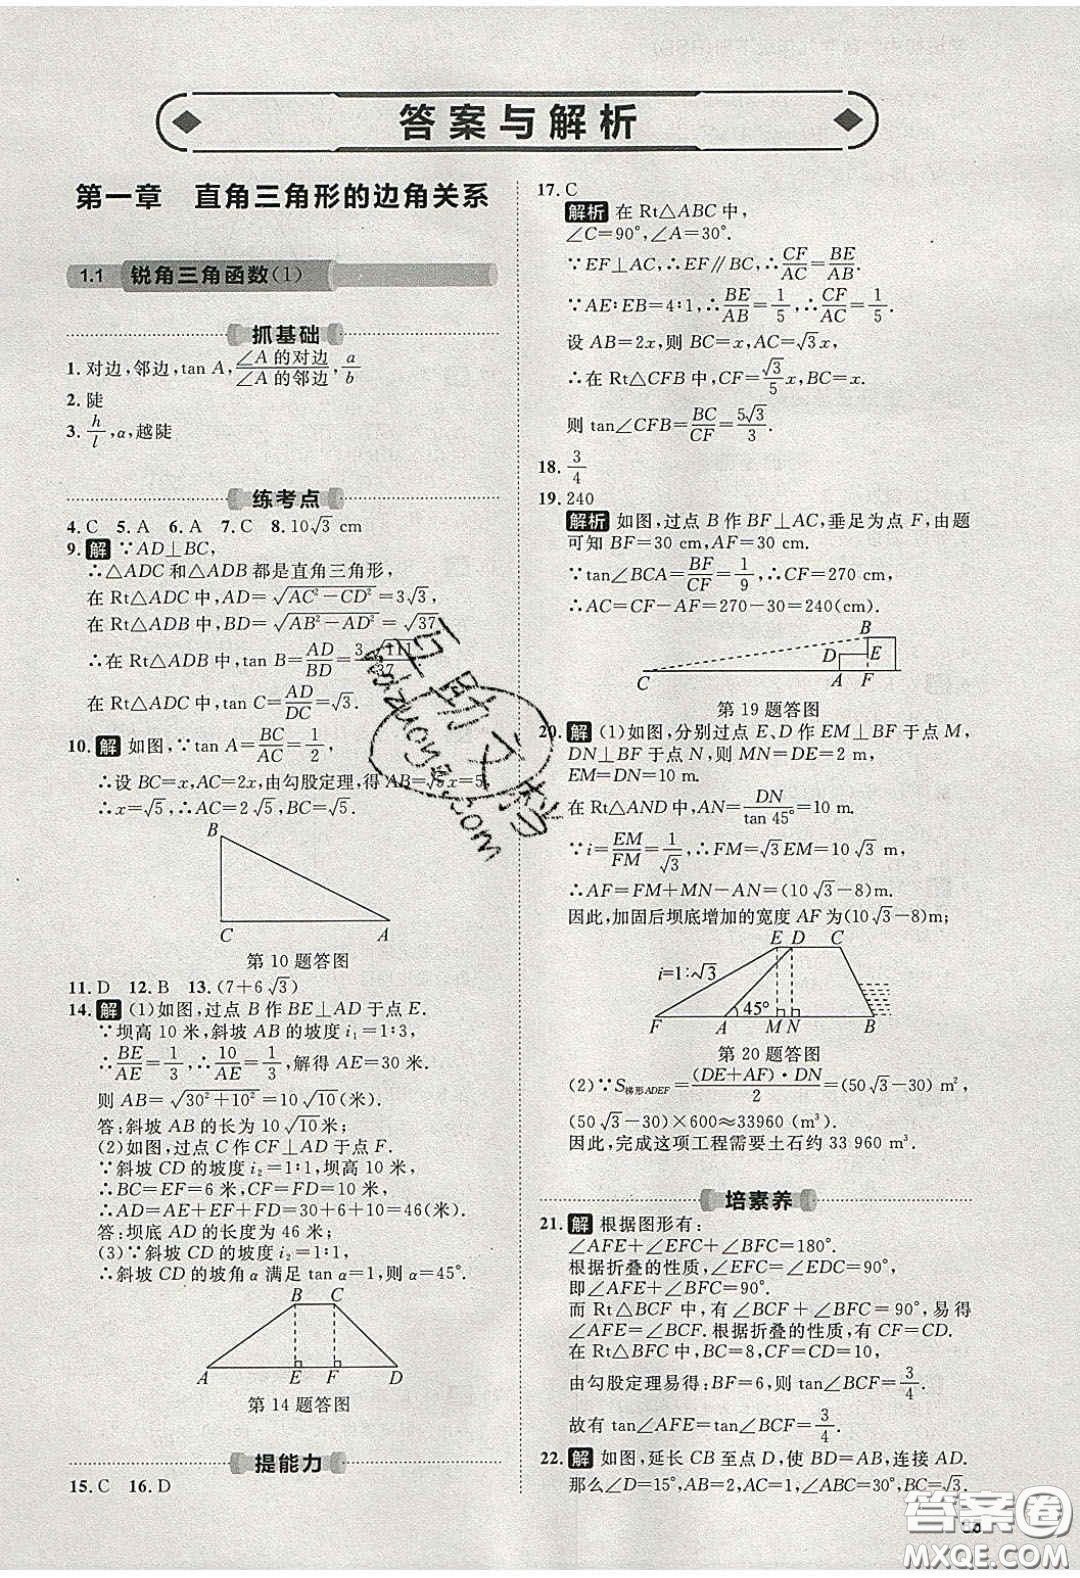 答案与解析
第一章 直角三角形的边角关系
1.1 锐角三角函数(1)
抓基础
1. 对边,邻边,tan A,∠A的对边/∠A的邻边,a/b
2. 陡
3. h/l,α,越陡
练考点
4. C 5. A 6. A 7. C 8. 10√3 cm
9. 解 ∵AD⊥BC,
∴△ADC和△ADB都是直角三角形,
在Rt△ADC中,AD=√(AC²-CD²)=3√3,
在Rt△ADB中,BD=√(AB²-AD²)=√37,
∴在Rt△ADB中,tan B=AD/BD=3√111/37,
在Rt△ADC中,tan C=AD/DC=√3.
10. 解 如图,∵tan A=BC/AC=1/2,
∴设BC=x,AC=2x,由勾股定理,得AB=√5x=5,
∴x=√5,∴AC=2√5,BC=√5.
B
C A
第10题答图
11. D 12. B 13. (7+6√3)
14. 解 (1)如图,过点B作BE⊥AD于点E.
∵坝高10米,斜坡AB的坡度i₁=1:3,
∴BE/AE=1/3,∴10/AE=1/3,解得AE=30米.
则AB=√(30²+10²)=10√10(米).
答:斜坡AB的长为10√10米;
(2)如图,过点C作CF⊥AD于点F.
∵斜坡CD的坡度i₂=1:1,坝高10米,
∴BC=EF=6米,CF=FD=10米,
∴AD=AE+EF+FD=30+6+10=46(米).
答:坝底AD的长度为46米;
(3)∵斜坡CD的坡度i₂=1:1,
∴斜坡CD的坡角α满足tan α=1,则α=45°.
B C
A E F D
第14题答图
提能力
15. C 16. D
17. C
解析 在Rt△ABC中,
∠C=90°,∠A=30°.
∵EF⊥AC,∴EF∥BC,∴CF/AC=BE/AB.
∵AE:EB=4:1,∴BE/AB=1/5,∴CF/AC=1/5.
设AB=2x,则BC=x,AC=√3x.
∴在Rt△CFB中,CF=√3/5 x,BC=x.
则tan∠CFB=BC/CF=5√3/3.
18. 3/4
19. 240
解析 如图,过点B作BF⊥AC,垂足为点F,由题
可知BF=30 cm,AF=30 cm.
∵tan∠BCA=BF/CF=1/9,∴CF=270 cm,
∴AC=CF-AF=270-30=240(cm).
B
D E
C A F
第19题答图
20. 解 (1)如图,分别过点E、D作EM⊥BF于点M,
DN⊥BF于点N,则MN=DE=2 m,
EM=DN=10 m.
在Rt△AND中,AN=DN/tan 45°=10 m.
∵i=EM/FM=1/√3,∴FM=√3EM=10√3 m,
∴AF=FM+MN-AN=(10√3-8)m.
因此,加固后坝底增加的宽度AF为(10√3-8)m;
E D C
i=1:√3
45°
F A M N B
第20题答图
(2)∵S梯形ADEF=(DE+AF)·DN/2=(50√3-30) m²,
(50√3-30)×600≈33960 (m³).
因此,完成这项工程需要土石约33 960 m³.
培素养
21. 解 根据图形有:
∠AFE+∠EFC+∠BFC=180°.
根据折叠的性质,∠EFC=∠EDC=90°,
即∠AFE+∠BFC=90°.
而Rt△BCF中,有∠BCF+∠BFC=90°,易得
∠AFE=∠BCF.根据折叠的性质,有CF=CD.
在Rt△BFC中,BC=8,CF=CD=10,
由勾股定理易得:BF=6,则tan∠BCF=3/4.
故有tan∠AFE=tan∠BCF=3/4.
22. 解 如图,延长CB至点D,使BD=AB,连接AD.
那么∠D=15°,BD=AB=2,∠ABC=30°,BC=√3.
答案卷
MXQE.COM